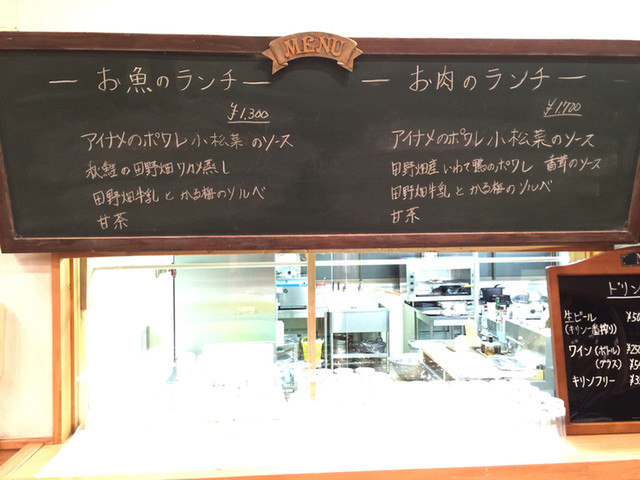 MENU
お魚のランチ
¥1,300
アイナメのポワレ 小松菜のソース
秋鮭の田野畑ワカメ蒸し
田野畑牛乳とかる梅のソルベ
甘茶
お肉のランチ
¥1700
アイナメのポワレ 小松菜のソース
田野畑産いわて鴨のポワレ 香茸のソース
田野畑牛乳とかる梅のソルベ
甘茶
ドリン
生ビール ¥50
(キリン一番搾り)
ワイン(ボトル) ¥250
(グラス) ¥50
キリンフリー ¥3